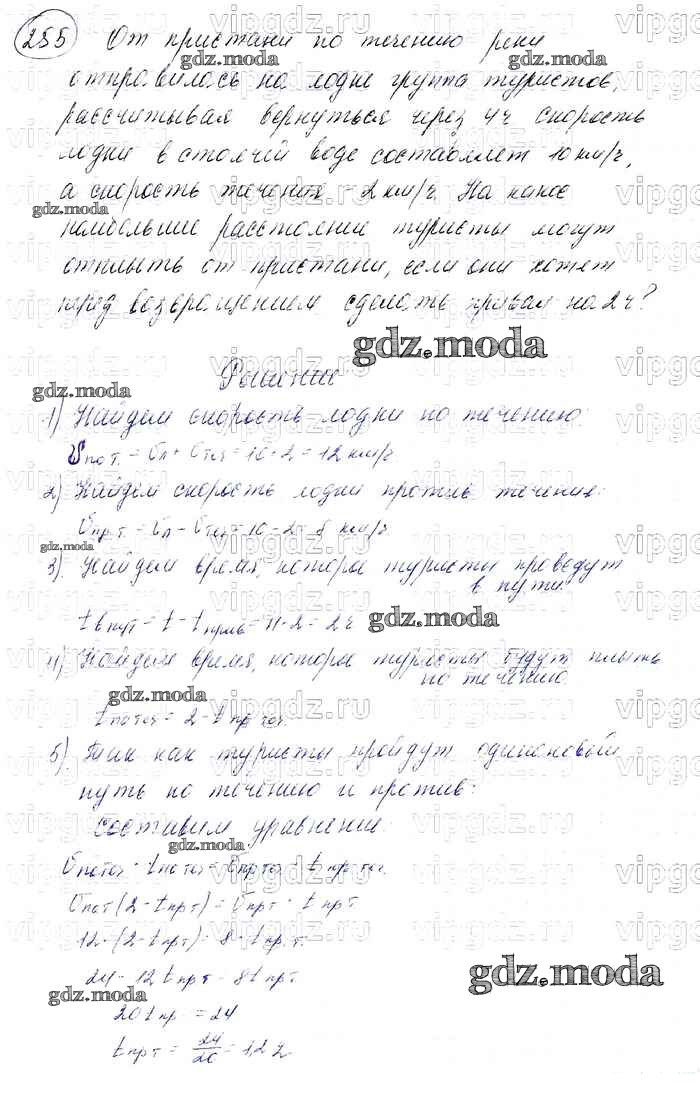 255 От пристани по течению реки
отправилось на лодке группа туристов,
рассчитывая вернуться через 4ч скорость
лодки в стоячей воде составляет 10 км/ч,
а скорость течения - 2 км/ч. На какое
наибольшее расстояние туристы могут
отплыть от пристани, если они хотят
перед возвращением сделать привал на 2ч?
gdz.moda
Решение
1) Найдем скорость лодки по течению:
по т. = л + теч = 10 + 2 = 12 км/ч
2) Найдем скорость лодки против течения:
пр т = л - теч = 10 - 2 = 8 км/ч
3) Найдем время, которое туристы проведут
в пути:
t в пут = t - t = 4 - 2 = 2ч
gdz.moda
4) Найдем время, которое туристы будут плыть
по течению
t по теч = 2 - t пр теч.
5) Так как туристы пройдут одинаковый
путь по течению и против:
составим уравнение:
по теч · t по теч = пр теч · t пр теч.
по т (2 - t пр т) = пр т · t пр т
12 · (2 - t пр т) = 8 · t пр т
24 - 12 t пр т = 8t пр т
gdz.moda
20 t пр = 24
t пр т = 24/20 = 1,2 ч